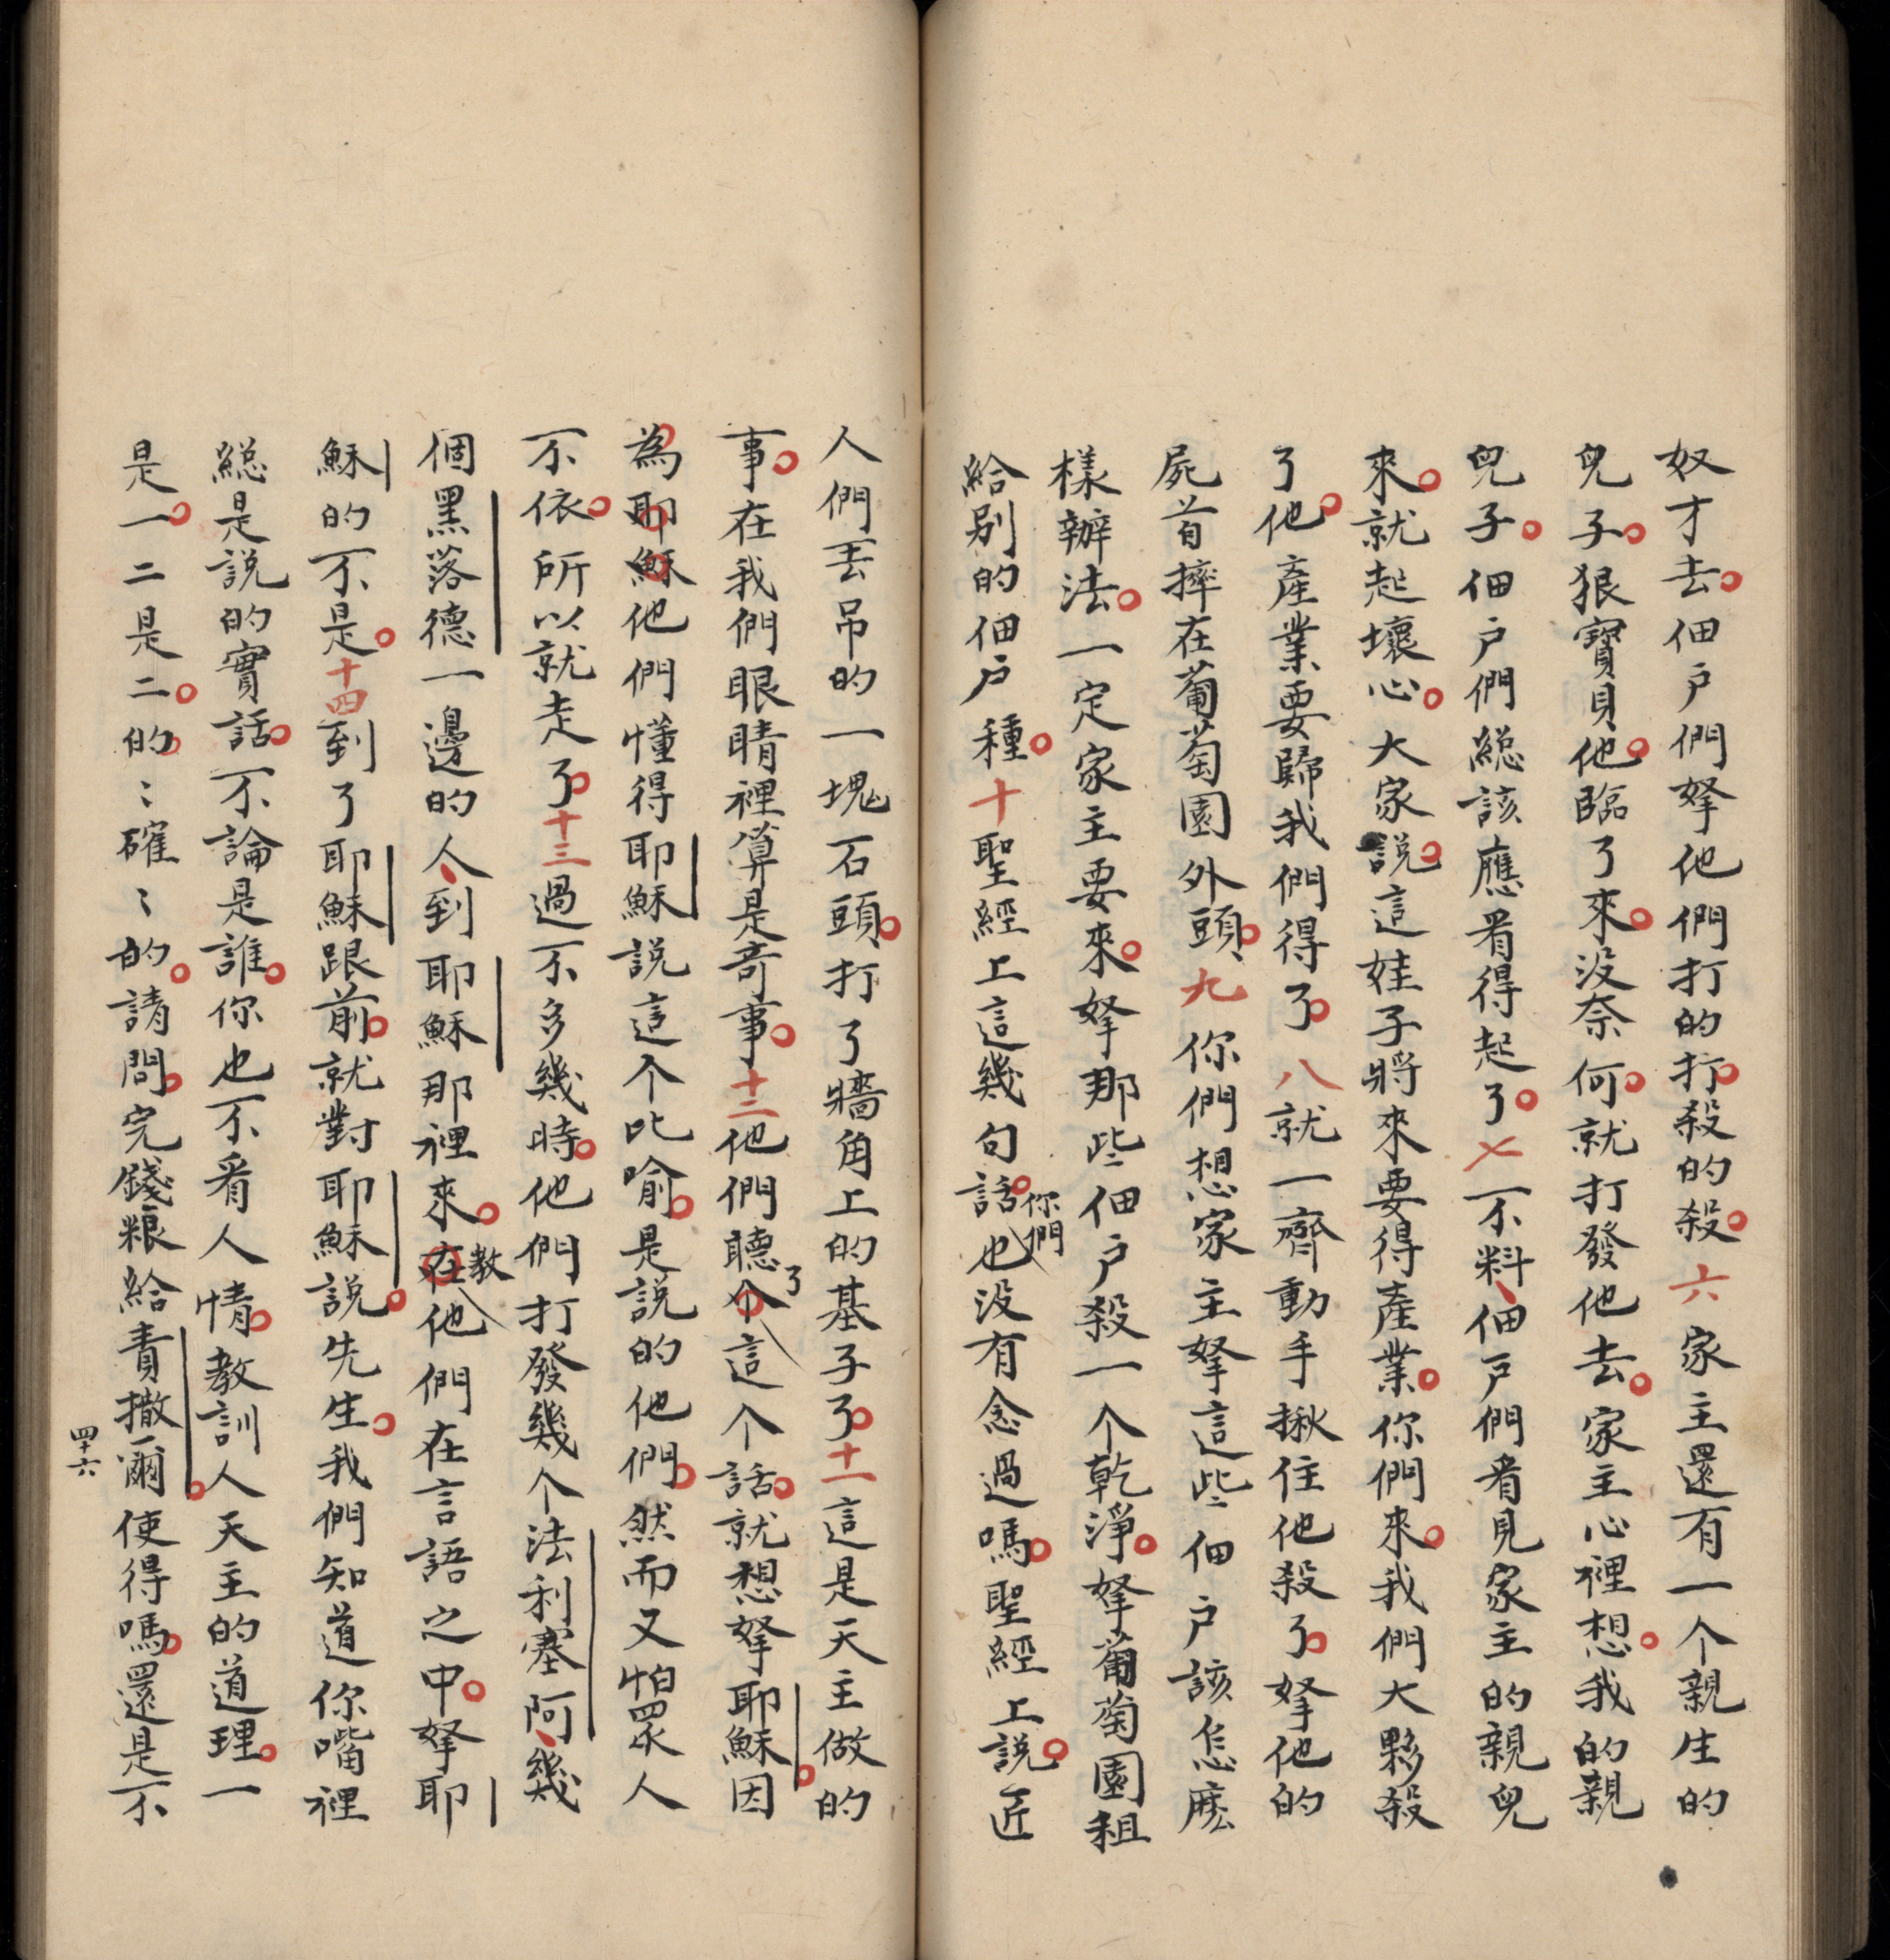 奴才去。佃户們拏他們打的打。殺的殺。六家主還有一个親生的
兒子。狠寶貝他。臨了來。没奈何。就打發他去。家主心裡想。我的親
兒子。佃户們緫該應看得起了。七不料、佃户們看見家主的親兒
來。就起壞心。大家説。這娃子將來要得產業。你們來。我們大夥殺
了他。產業要歸我們得了。八就一齊動手揪住他殺了。拏他的
屍首摔在葡萄園外頭。九你們想家主拏這些佃户該怎麽
樣辦法。一定家主要來。拏那些佃户殺一个乾淨。拏葡萄園租
給别的佃户種。十聖經上這幾句話。你們也没有念過嗎。聖經上説。匠
人們丟吊的一塊石頭。打了牆角上的基子了。十一這是天主做的
事。在我們眼睛裡算是奇事。十二他們聽了這个話。就想拏耶穌。因
為耶穌他們懂得耶穌説這个比喻。是説的他們。然而又怕眾人
不依。所以就走了。十三過不多幾時。他們打發幾个法利塞阿、幾
個黑落德一邊的人、到耶穌那裡來。教他們在言語之中。拏耶
穌的不是。十四到了耶穌跟前。就對耶穌説。先生。我們知道你嘴裡
緫是説的實話。不論是誰。你也不看人情。教訓人天主的道理。一
是一。二是二。的的確確的。請問。完錢粮給責撒爾。使得嗎。還是不
四十六